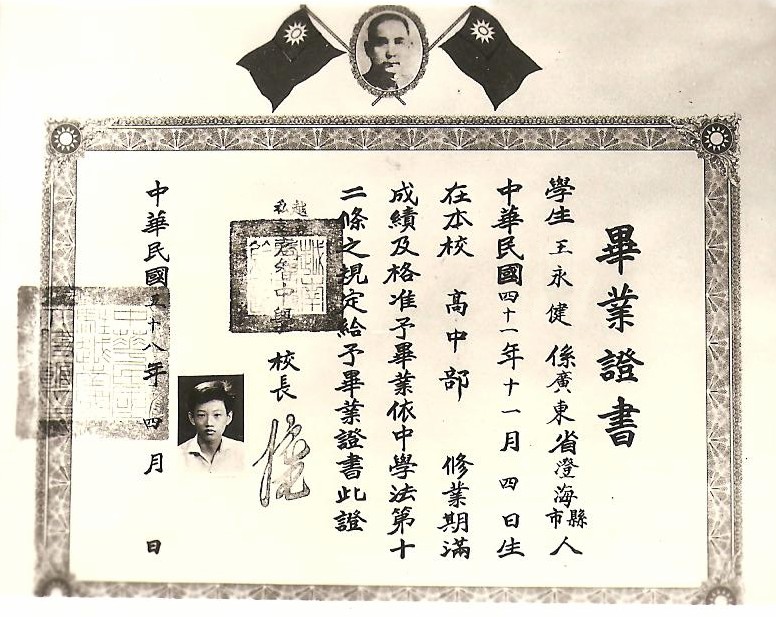 畢業證書
學生王永健係廣東省澄海縣市人
中華民國四十一年十一月四日生
在本校高中部修業期滿
成績及格准予畢業依中學法第十
二條之規定給予畢業證書此證
越
私
智中學
校長
中華民國五十八年四月 日